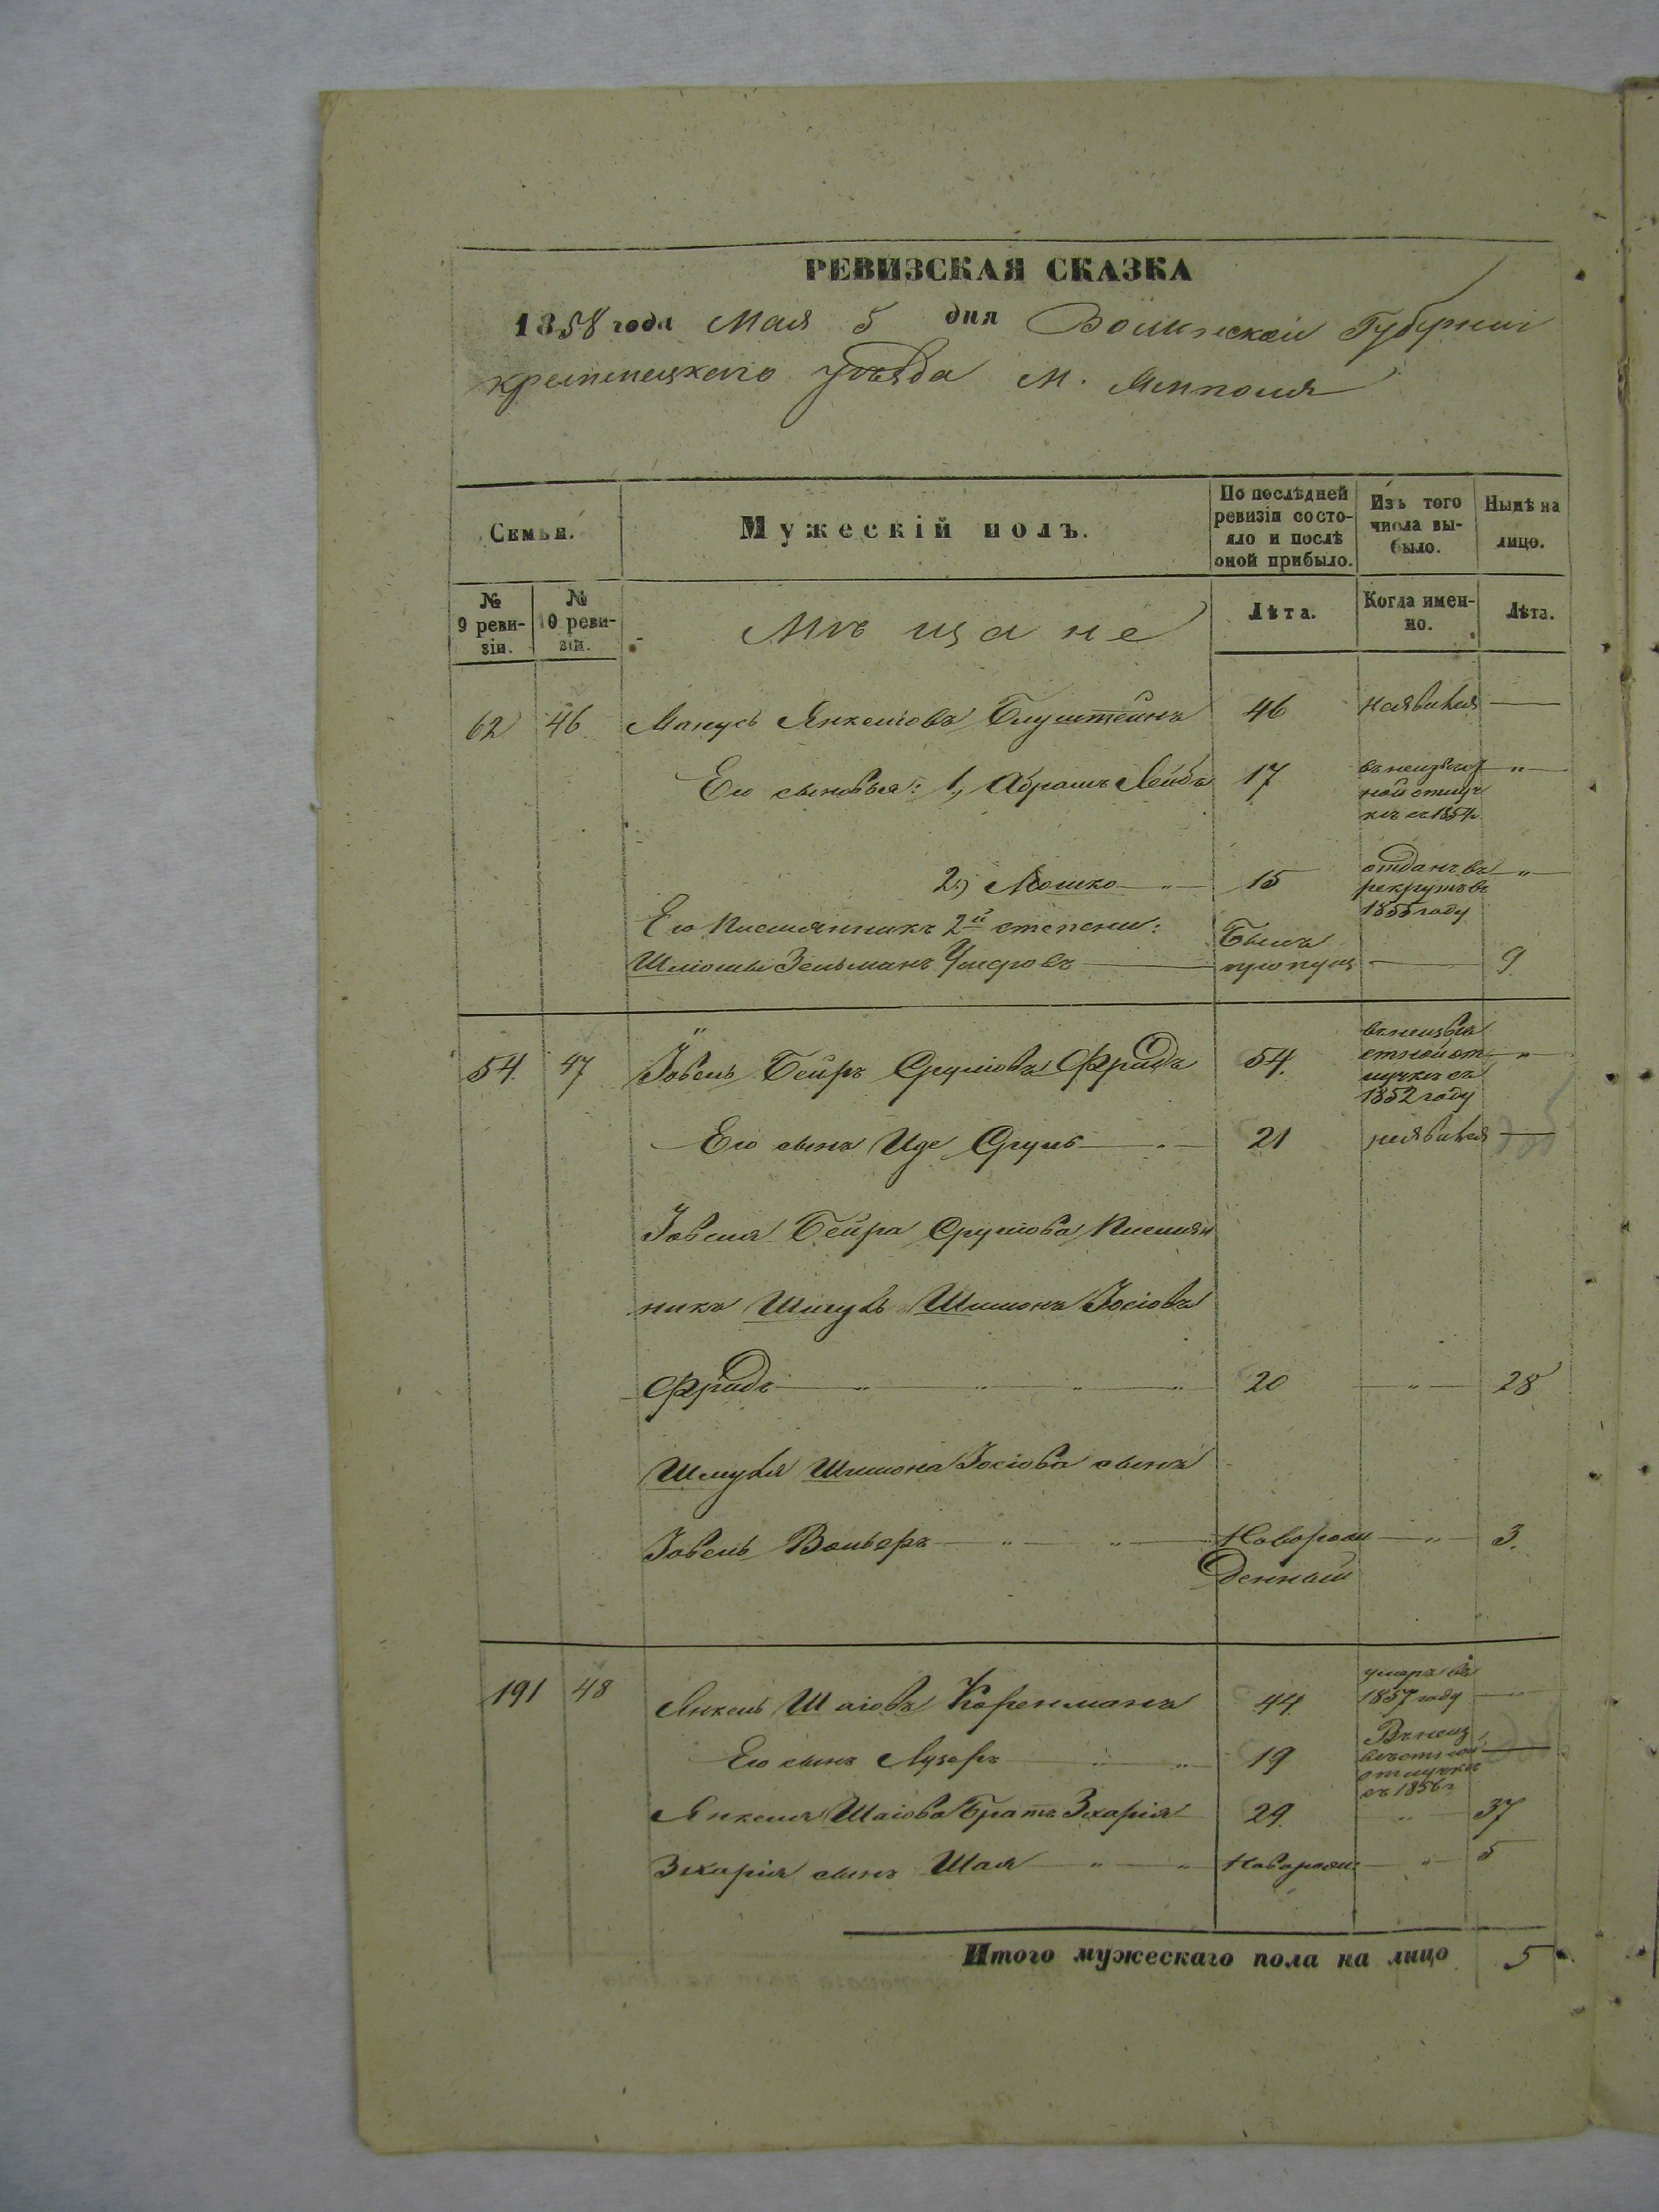 РЕВИЗСКАЯ СКАЗКА
1858 года Мая 5 дня Волинской Губерніи
кременецкаго уѣзда м. Ямполя
Семьи.
Мужескій полъ.
По послѣдней ревизіи состояло и послѣ оной прибыло.
Изъ того числа выбыло.
Нынѣ на лицо.
№ 9 ревизіи.
№ 10 ревизіи.
Мѣщане
Лѣта.
Когда именно.
Лѣта.
62 46 Манусь Янкеліовъ Блуштейнъ 46 неявился —
Его сыновья: 1, Абрамъ Лейбъ 17 въ неизвѣст „
ной отлуч
кѣ съ 1854
2, Мошко 15 отданъ въ „
рекруты въ
1855 году
Его Племянникъ 2й степени: Былъ
Шліомы Зельманъ пропущ — 9
54. 47 Іовель Бейръ Сруліовъ Фридъ 54. въ неизвѣ
стной от „
лучкѣ съ
1852 году
Его сынъ Иде Сруль 21 неявился —
Іовеля Бейра Сруліова Племян
никъ Шмуль Шимонъ Іосіовъ
Фридъ 20 „ 28
Шмуля Шимона Іосіова сынъ
Іовель Вольеръ Новорож „ 3.
денный
191 48 Янкель Шаіовъ Коренманъ 44 умеръ въ
1857 году
Его сынъ Лузеръ 19 Въ неиз
вѣстной
отлучкѣ
съ 1856 г
Янкеля Шаіова Братъ Зхарія 29. „ 37
Зхарія сынъ Шая Новорож: „ 5
Итого мужескаго пола на лицо 5